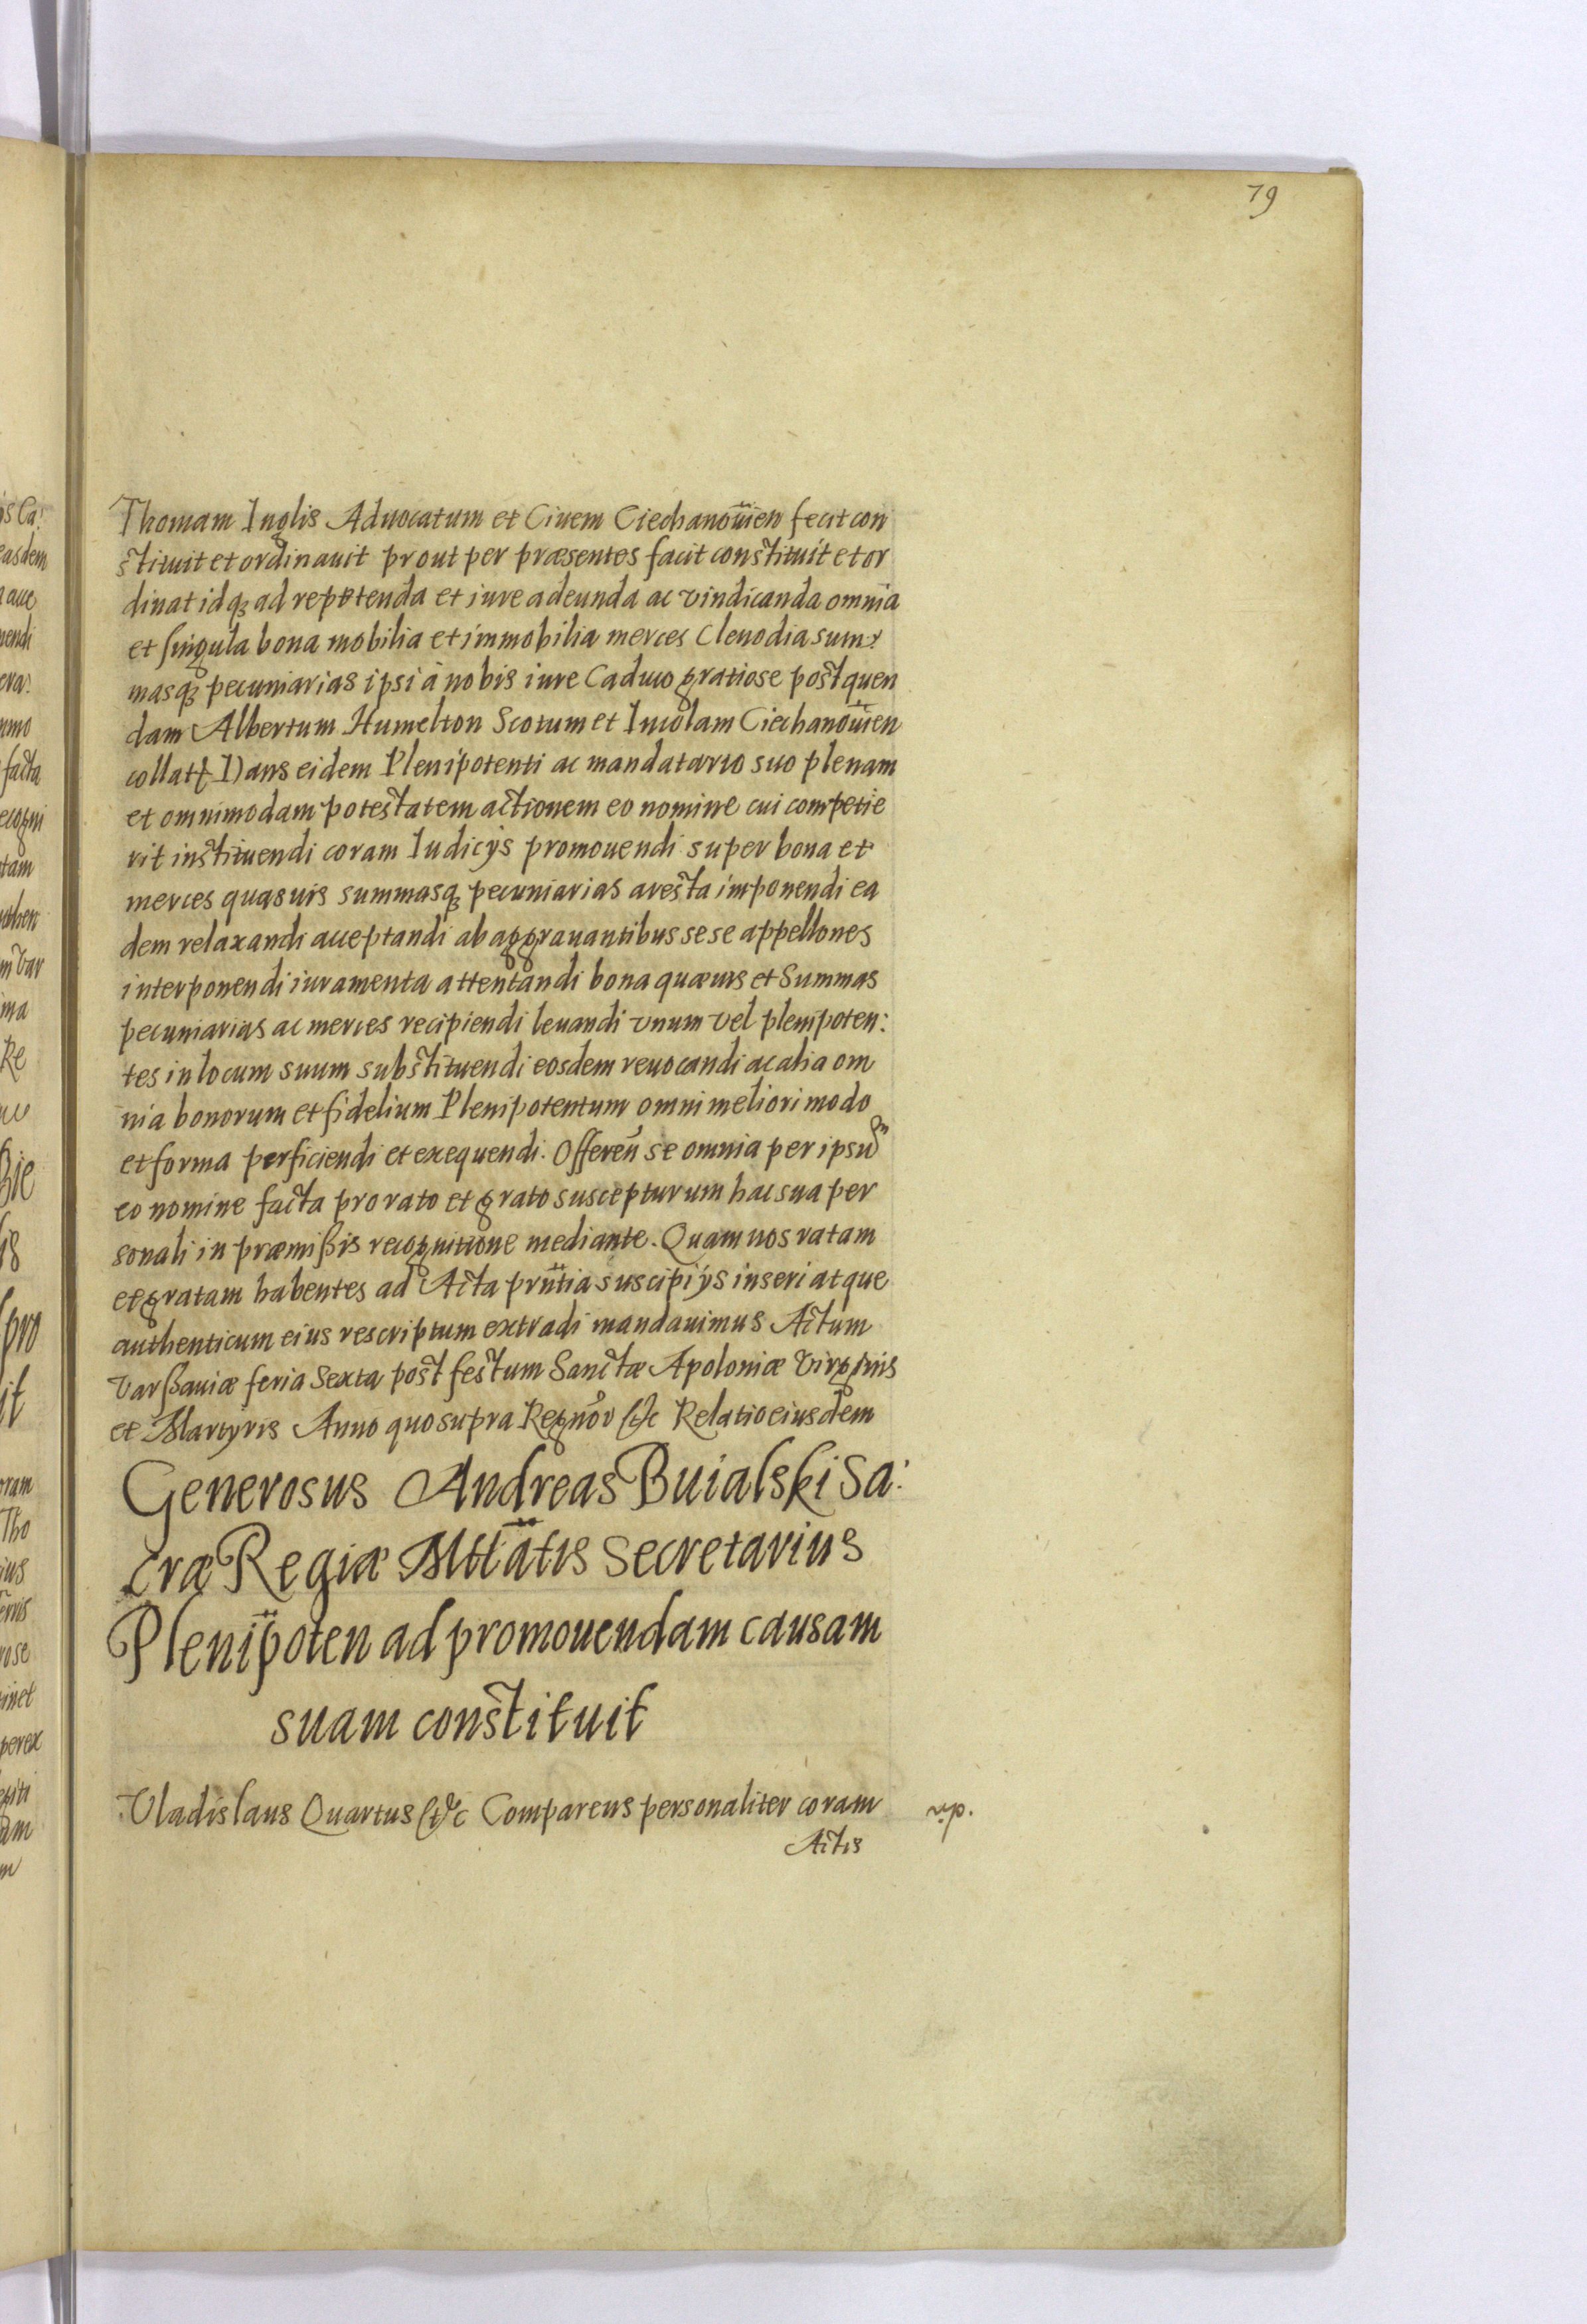 79
Thomam Inglis Aduocatum et Ciuem Ciechanouien fecit con
stituit et ordinauit prout per præsentes facit constituit et or
dinat idq₃ ad repetenda et iure adeunda ac vindicanda omnia
et singula bona mobilia et immobilia merces Clenodia sum⸗
masq₃ pecuniarias ipsi à nobis iure Caduco gratiose post quen
dam Albertum Humelton Scotum et Incolam Ciechanouien
collatt Dans eidem Plenipotenti ac mandatario suo plenam
et omnimodam potestatem actionem eo nomine cui competie
rit instituendi coram Iudicijs promouendi super bona et
merces quasuis summasq₃ pecuniarias aresta imponendi ea
dem relaxandi acceptandi ab aggrauantibus sese appellones
interponendi iuramenta attentandi bona quæuis et Summas
pecuniarias ac merces recipiendi leuandi vnum vel plenipoten:
tes in locum suum substituendi eosdem reuocandi ac alia om
nia bonorum et fidelium Plenipotentum omni meliori modo
et forma perficiendi et exequendi. Offeren se omnia per ipsum
eo nomine facta pro rato et grato suscepturum hac sua per
sonali in præmißis recognitione mediante. Quam nos ratam
et gratam habentes ad Acta prntia suscipi ijs inseri atque
authenticum eius rescriptum extradi mandauimus Actum
Varßauiæ feria Sexta post festum Sanctæ Apoloniæ Virginis
et Martyris Anno quo supra Regnor &c Relatio eiusdem
Generosus Andreas Buialski Sa:
cræ Regiæ Mttatis Secretarius
Plenipoten ad promouendam causam
suam constituit
Vladislaus Quartus &c Comparens personaliter coram
Actis